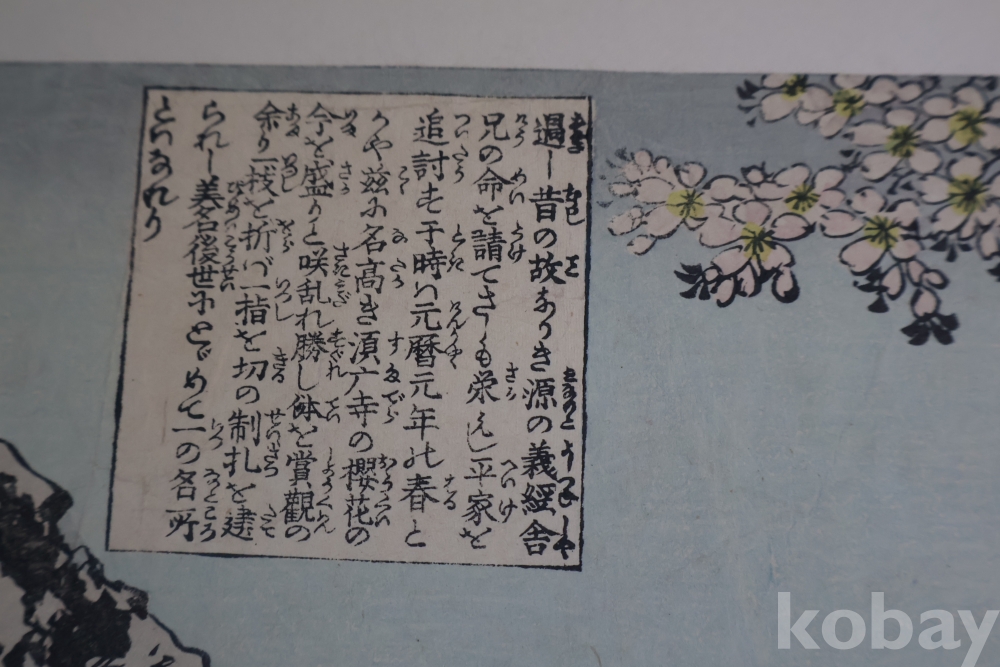 過し昔の故ありき源の義經舎
兄の命を請てさしも栄えし平家を
追討す于時ハ元暦元年の春と
かや茲に名高き須广寺の櫻花の
今を盛りと咲乱れ勝し体を賞觀の
余り一枝を折バ一指を切の制札を建
られし美名後世にとゞめて一の名所
とハなれり
kobay